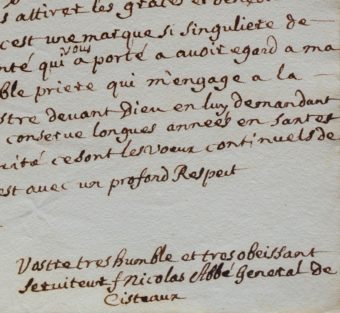 s attirer les graces et bened
c'est une marque si singuliere de
nté qui vous a porté a avoir egard a ma
ble priere qui m'engage a la
stre devant Dieu en luy demandant
conserve longues années en santé
rité ce sont les voeux continuels de
est avec un profond Respect
Vostre tres humble et tres obeissant
serviteur f Nicolas Abbé General de
Cisteaux